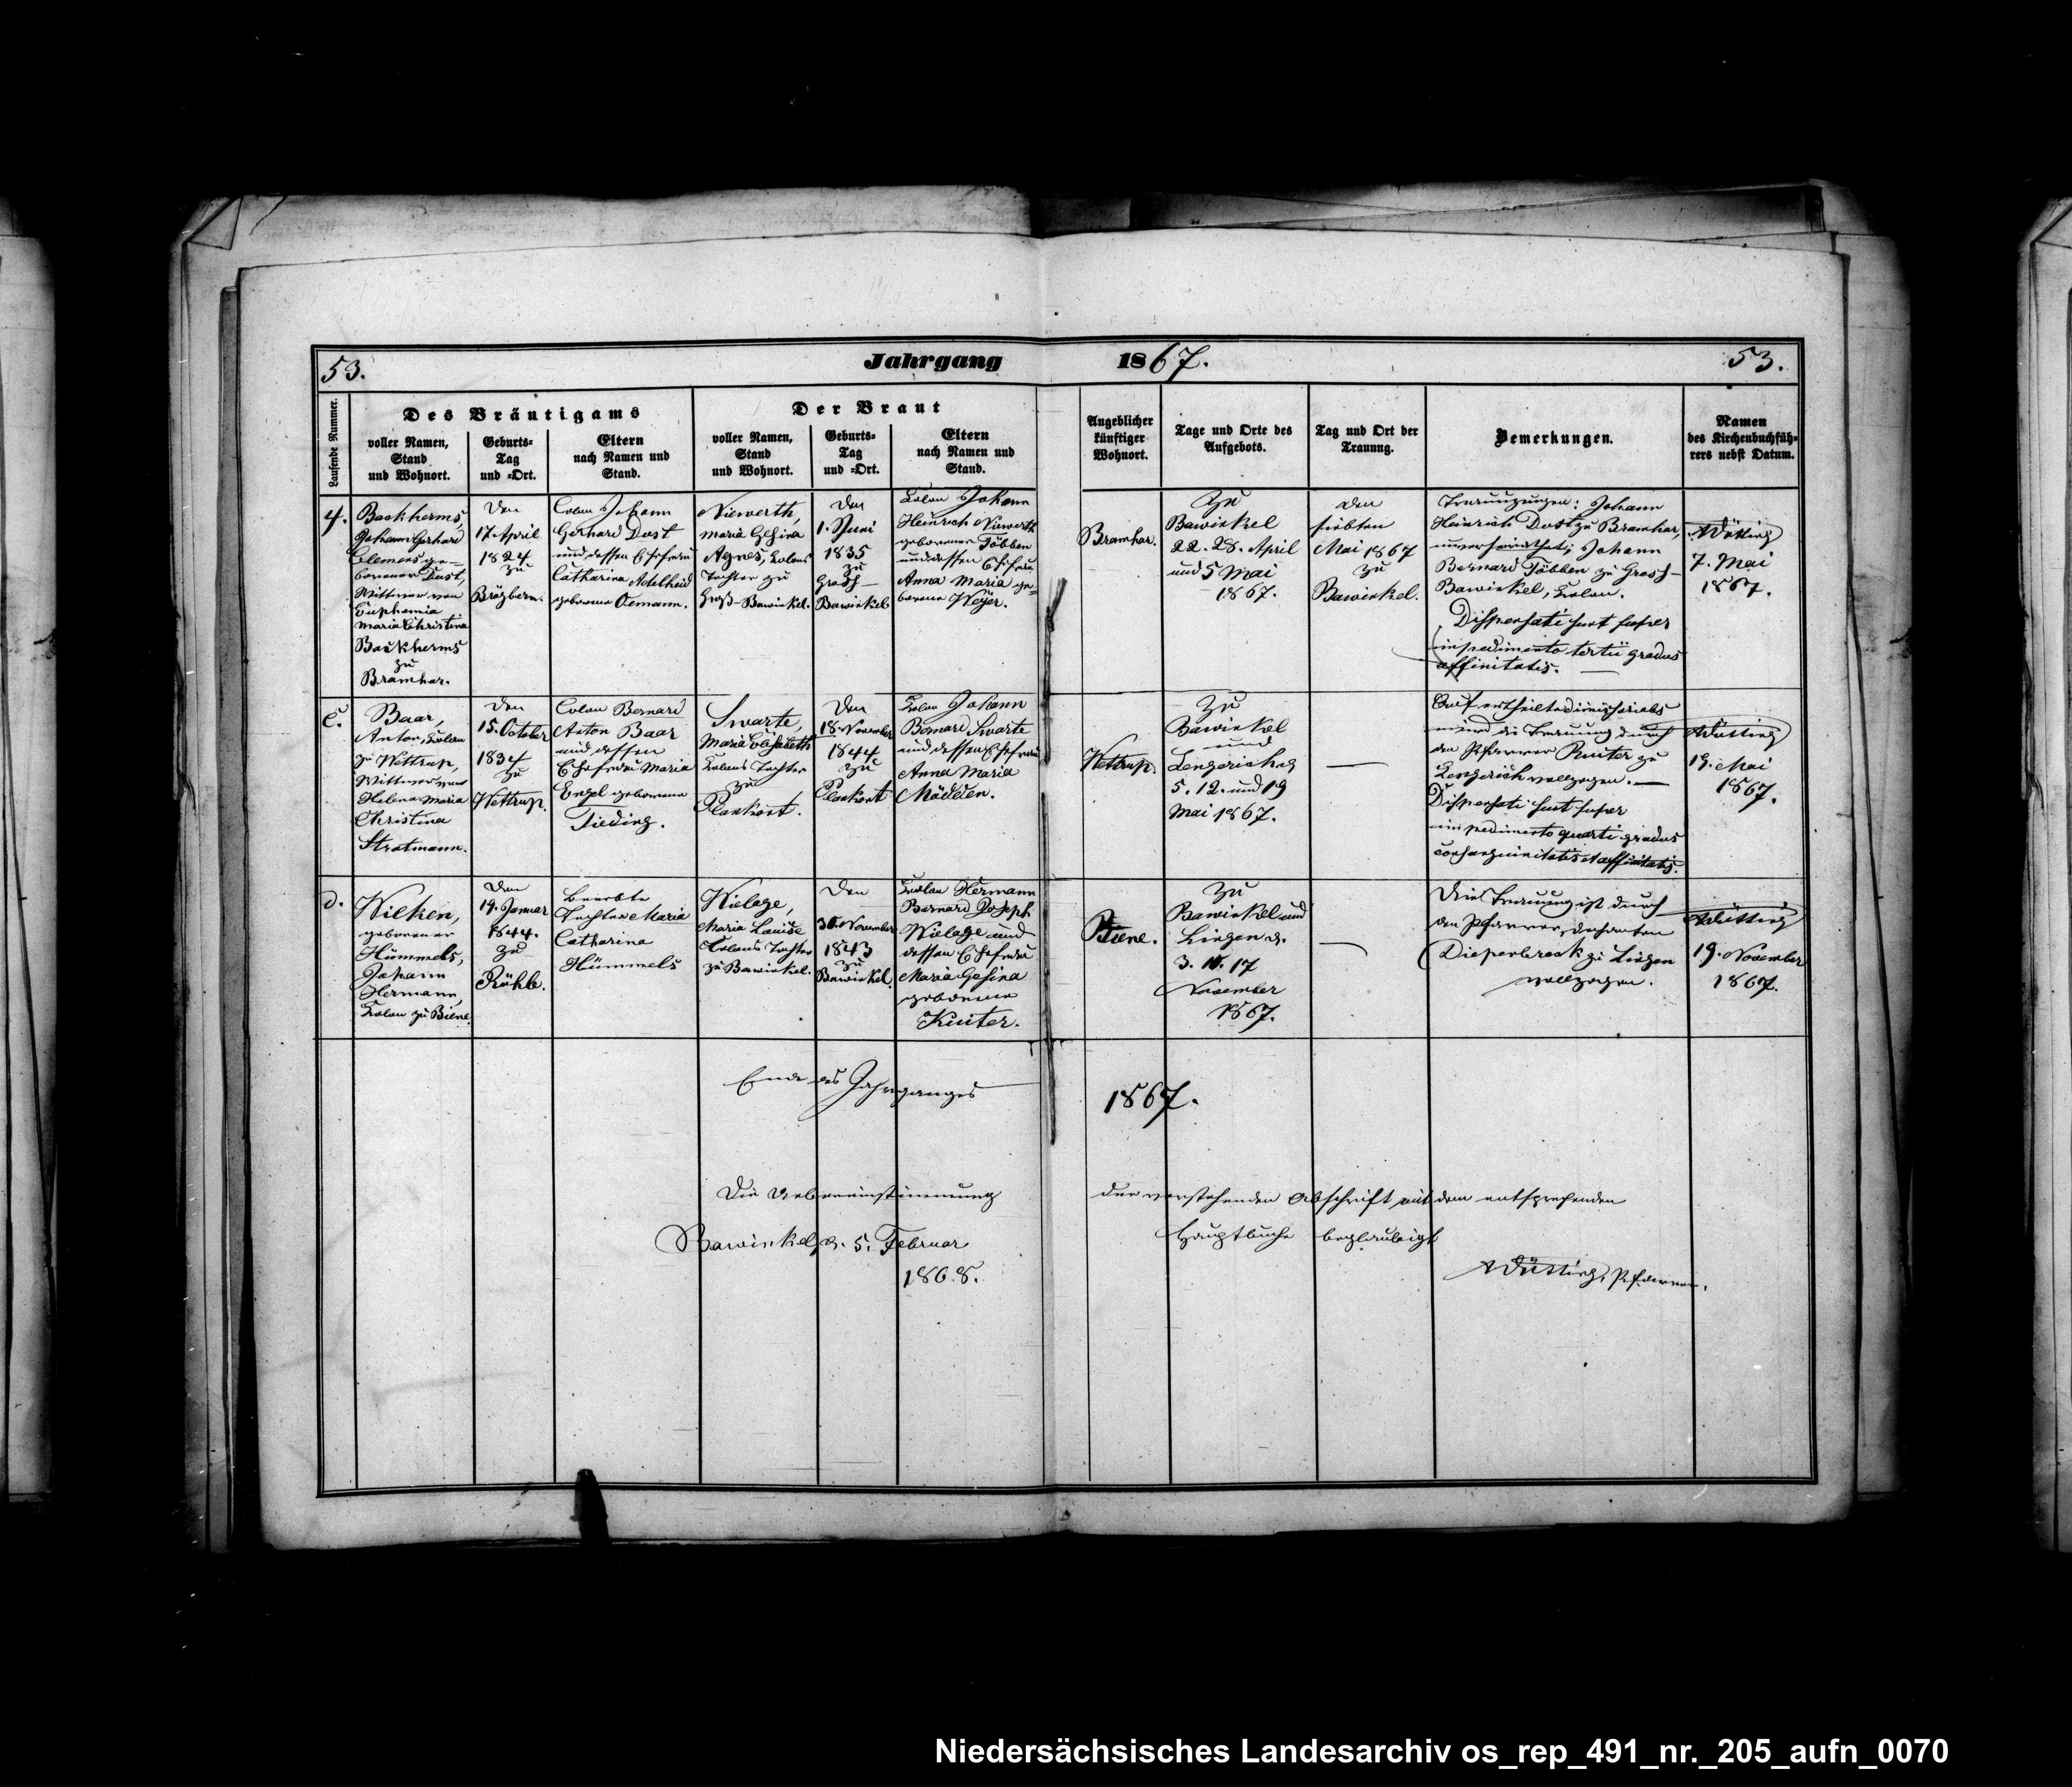 53.
Jahrgang 1867.
53.
Laufende Nummer.
Des Bräutigams
voller Namen,
Stand
und Wohnort.
Geburts-
Tag
und -Ort.
Eltern
nach Namen und
Stand.
Der Braut
voller Namen,
Stand
und Wohnort.
Geburts-
Tag
und -Ort.
Eltern
nach Namen und
Stand.
Angeblicher
künftiger
Wohnort.
Tage und Orte des
Aufgebots.
Tag und Ort der
Trauung.
Bemerkungen.
Namen
des Kirchenbuchfüh-
rers nebst Datum.
4.
Backherms,
Johann Gerhard
Clemens ge-
borener Dust,
Wittwer von
Euphemia
Maria Christina
Backherms
zu
Bramhar.
Den
17. April
1824
zu
Brögbern.
Colon Johann
Gerhard Dust
und dessen Ehefrau
Catharina Adelheid
geborene Osmann.
Niewerth,
Maria Gesina
Agnes, Colons
Tochter zu
Groß-Bawinkel.
Den
1. Juni
1835
zu
Gross-
Bawinkel
Colon Johann
Heinrich Niewerth
geborener Többen
und dessen Ehefrau
Anna Maria ge-
borene Weyer.
Bramhar.
Zu
Bawinkel
22. 28. April
und 5 Mai
1867.
Den
siebten
Mai 1867
zu
Bawinkel.
Trauzeugen: Johann
Heinrich Dust zu Bramhar,
unverheirathet; Johann
Bernard Többen zu Gross-
Bawinkel, Colon.
Dispensati sunt super
impedimento tertii gradus
affinitatis.
Wütting
7. Mai
1867.
c.
Baar,
Anton, Colon
zu Wettrup,
Wittwer von
Helena Maria
Christina
Stratmann.
Den
15. October
1834
zu
Wettrup.
Colon Bernard
Anton Baar
und dessen
Ehefrau Maria
Engel geborene
Tieding.
Swarte,
Maria Elisabeth
Colons Tochter
zu
Plankort.
Den
18. November
1844
zu
Plankort
Colon Johann
Bernard Swarte
und dessen Ehefrau
Anna Maria
Mödden.
Wettrup.
Zu
Bawinkel
und
Lengerich
5. 12. und 19
Mai 1867.
Auf ertheilte dimissoriales
wird die Trauung durch
den Pfarrer Reuter zu
Lengerich vollzogen.
Dispensati sunt super
impedimento quarti gradus
consanguinitatis et affinitatis.
Wütting
19. Mai
1867.
d.
Wilken,
geborener
Hümmels,
Johann
Hermann,
Colon zu Biene.
Den
19. Januar
1844.
zu
Rühle.
Beerbte
Tochter Maria
Catharina
Hümmels
Wielage,
Maria Louise
Colons Tochter
zu Bawinkel.
Den
30. November
1843
zu
Bawinkel.
Colon Hermann
Bernard Joseph
Wielage und
dessen Ehefrau
Maria Gesina
geborene
Kuiter.
Biene.
Zu
Bawinkel und
Lingen d.
3. 10. 17
November
1867.
Die Trauung ist durch
den Pfarrer, Dechanten
Diepenbrock zu Lingen
vollzogen.
Wütting
19. November
1867.
Ende des Jahrganges 1867.
Die Uebereinstimmung der vorstehenden Abschrift mit dem entsprechenden
Hauptbuche beglaubigt
Bawinkel, d. 5. Februar
1868.
Wütting, Pfarrer.
Niedersächsisches Landesarchiv os_rep_491_nr._205_aufn_0070